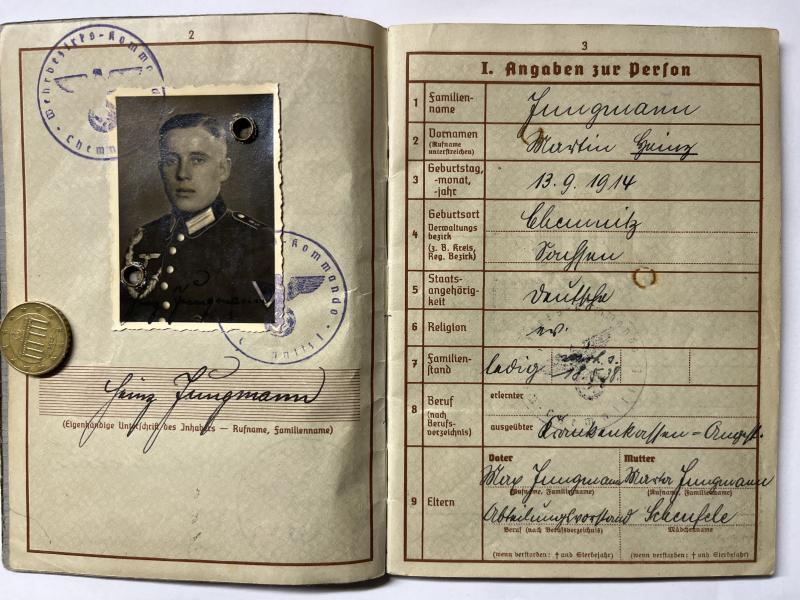 2
Wehrbezirks-Kommando
Heinz Jungmann
Heinz Jungmann
(Eigenhändige Unterschrift des Inhabers — Rufname, Familienname)
3
I. Angaben zur Person
1 Familien-
name
Jungmann
2 Vornamen
(Rufname
unterstreichen)
Martin Heinz
3 Geburtstag,
-monat,
-jahr
13.9.1914
4 Geburtsort
Verwaltungs-
bezirk
(z. B. Kreis,
Reg. Bezirk)
Chemnitz
Sachsen
5 Staats-
angehörig-
keit
Deutsche
6 Religion
ev.
7 Familien-
stand
ledig
8 Beruf
(nach
Berufs-
verzeichnis)
erlernter
ausgeübter
Krankenkassen-Angest.
9 Eltern
Vater
Mutter
Max Jungmann
Marta Jungmann
(Rufname, Familienname)
(Rufname, Familienname)
Abteilungsvorstand
Scheufele
Beruf (nach Berufsverzeichnis)
Mädchenname
(wenn verstorben: † und Sterbejahr)
(wenn verstorben: † und Sterbejahr)